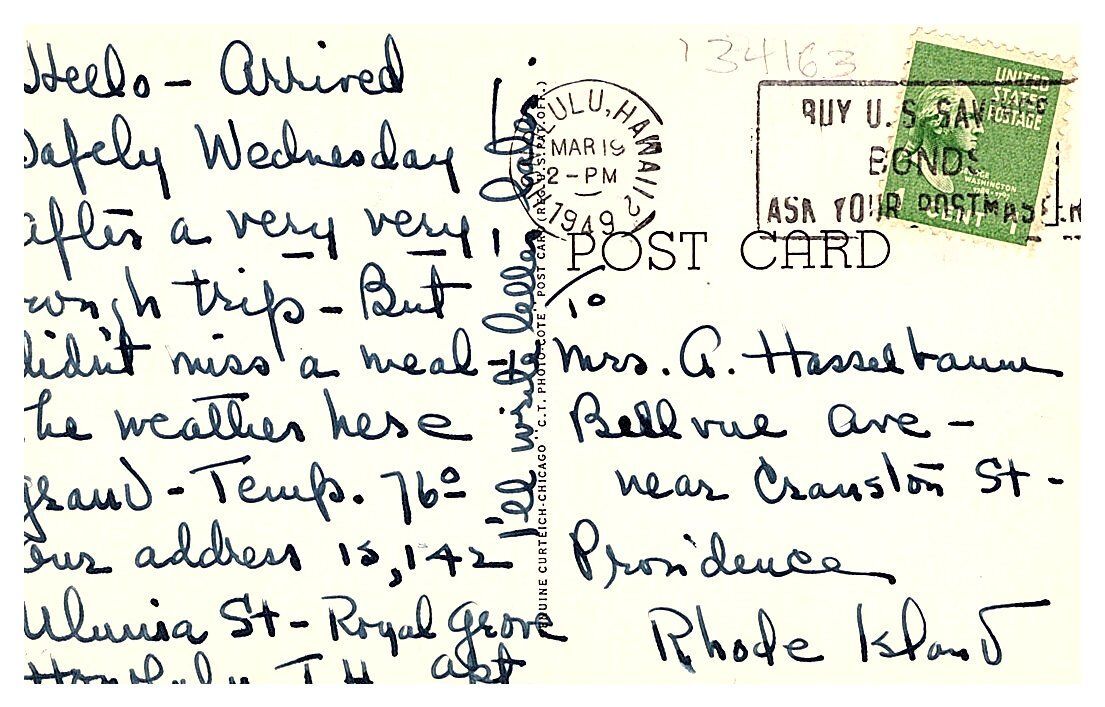 Hello - Arrived
Safely Wednesday
after a very very
rough trip - But
didn't miss a meal -
The weather here
grand - Temp. 76°
Our address is, 142
Uluniu St - Royal Grove
Honolulu T.H. apt
I'll write letter later
134163
ULU, HAWAII
MAR 19
2 - PM
1949
2
BUY U.S. SAVINGS
BONDS
ASK YOUR POSTMASTER
UNITED
STATES
POSTAGE
WASHINGTON
1 CENT 1
POST CARD
GENUINE CURTEICH-CHICAGO "C.T. PHOTO-COTE" POST CARD (REG. U.S. PAT. OFF.)
To
Mrs. A. Hasselbaum
Bellvue Ave -
near Cranston St -
Providence
Rhode Island